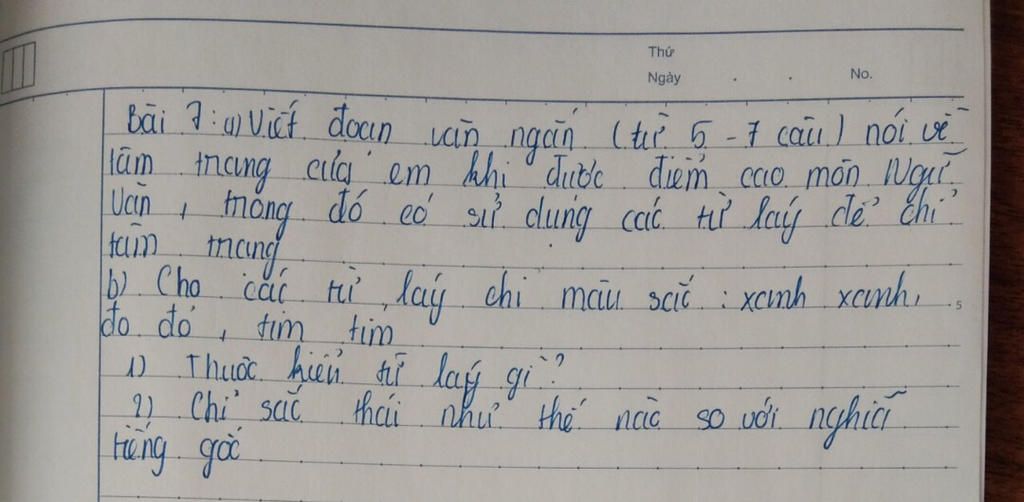 Thứ
Ngày . . No.
Bài 7: a) Viết đoạn văn ngắn (từ 5 - 7 câu) nói về
tâm trạng của em khi được điểm cao môn Ngữ
Văn, trong đó có sử dụng các từ láy để chỉ
tâm trạng
b) Cho các từ láy chỉ màu sắc : xanh xanh,
đo đỏ, tim tím
1) Thuộc kiểu từ láy gì?
2) Chỉ sắc thái như thế nào so với nghĩa
tiếng gốc
5